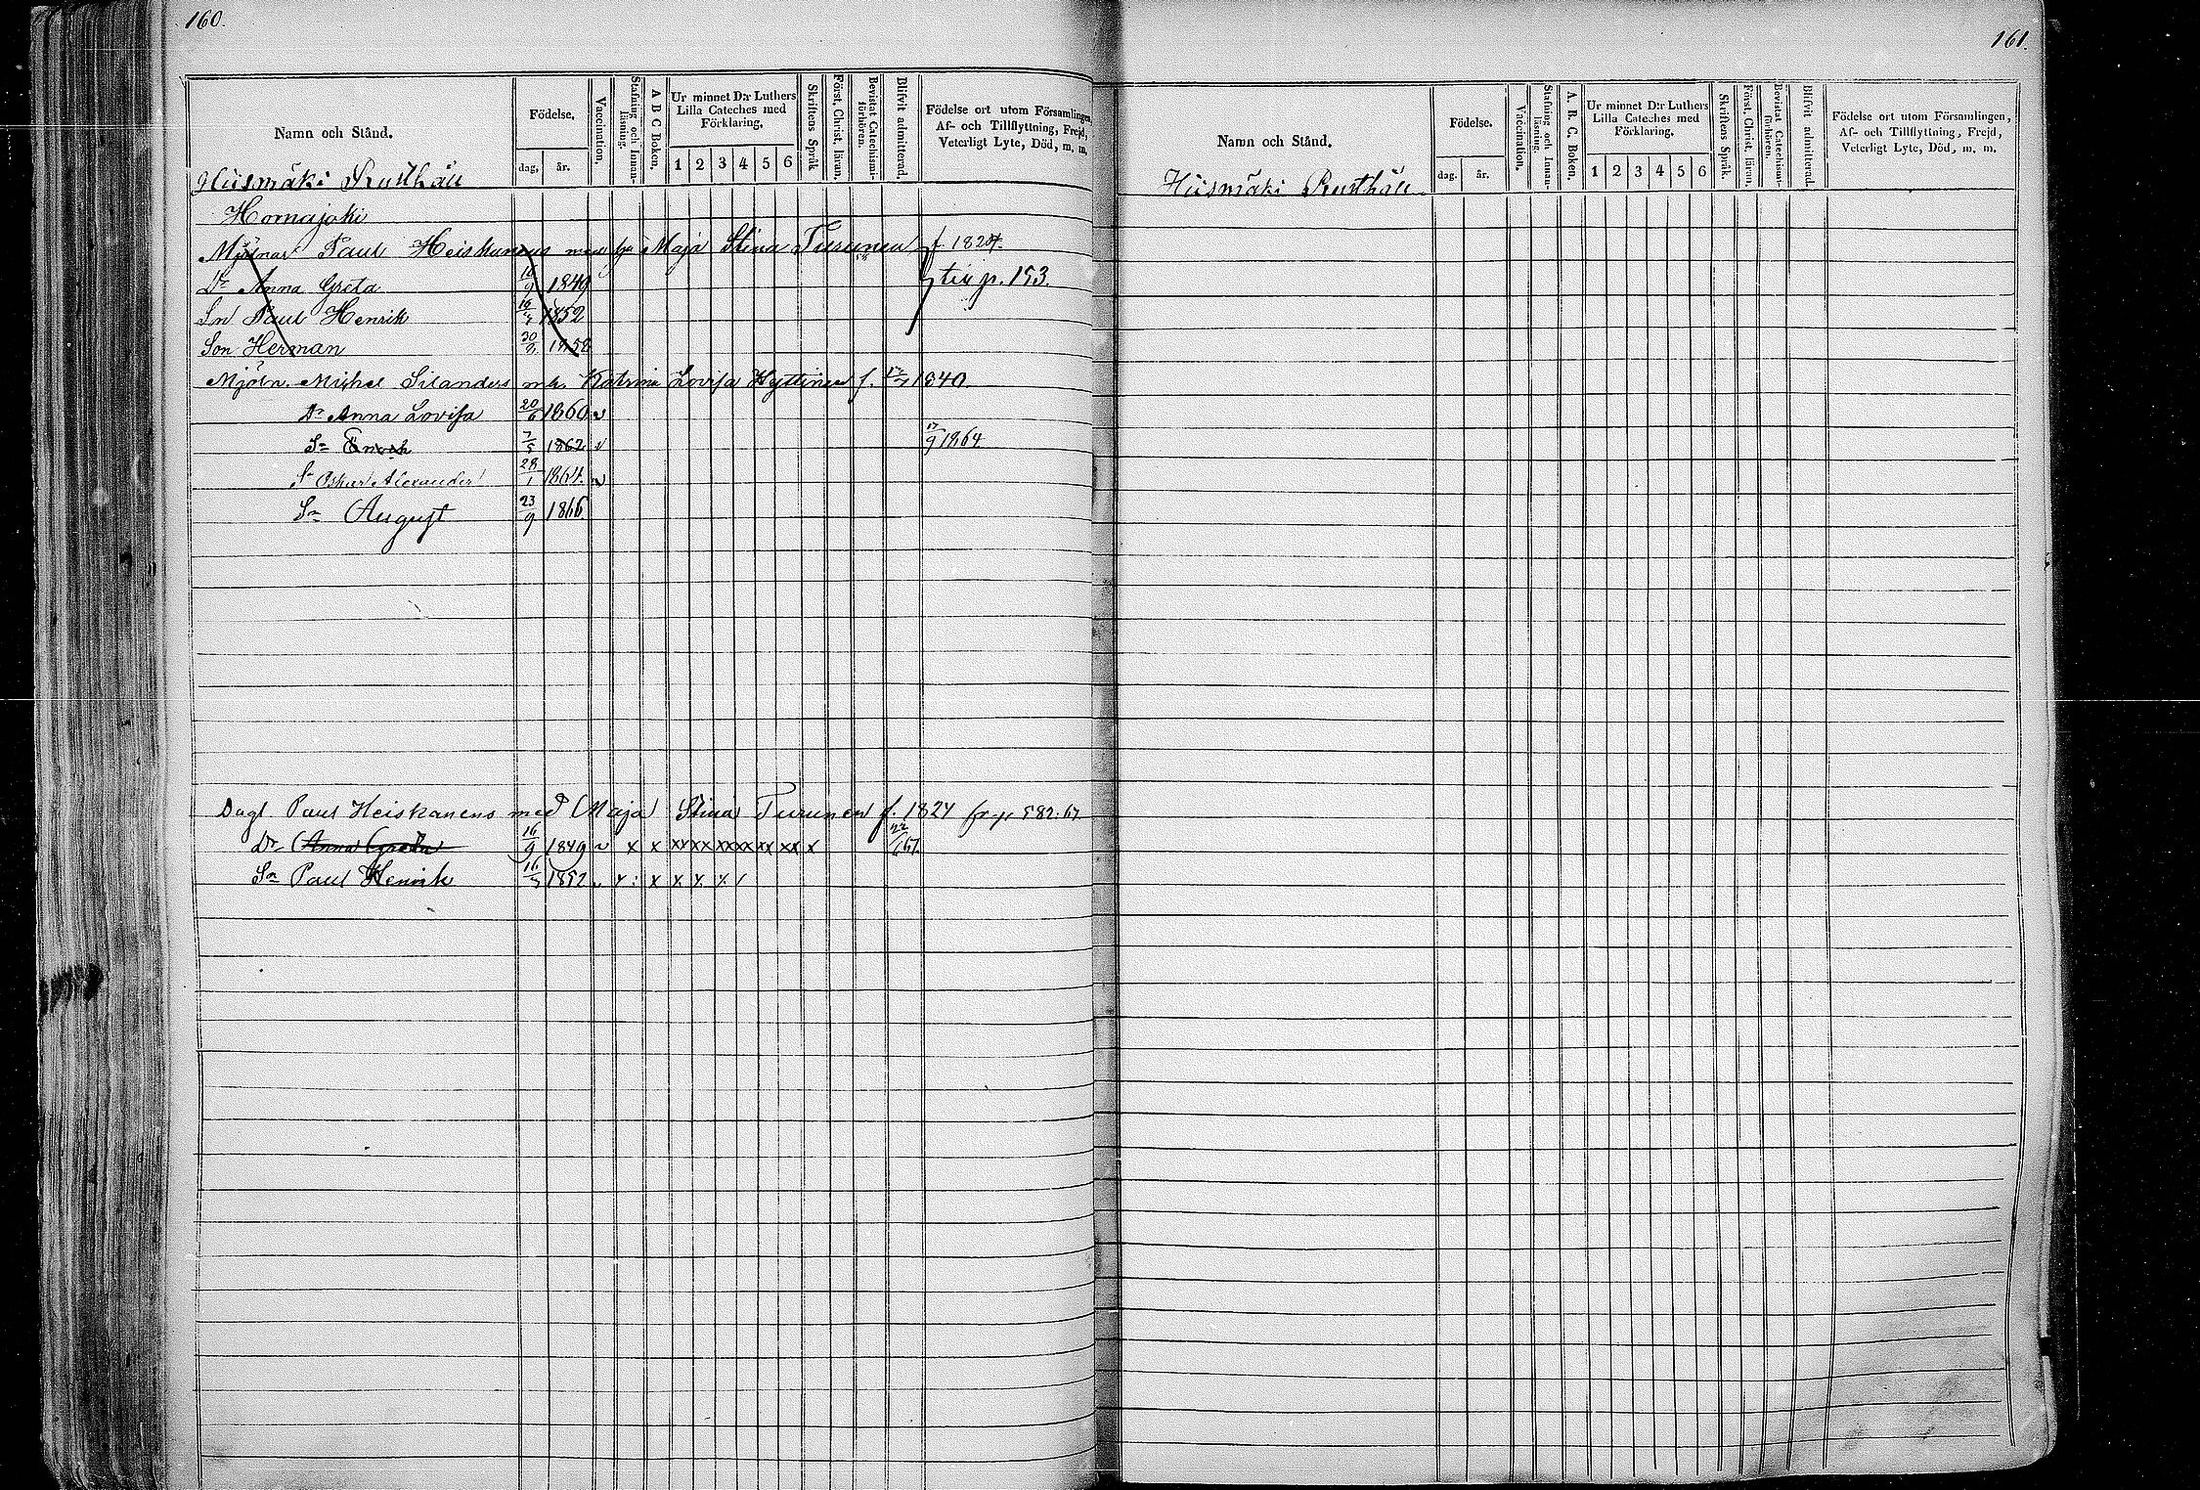 160.
Namn och Stånd.
Födelse.
dag, år.
Vaccination.
Stafning och Innan-läsning.
A B C Boken.
Ur minnet D:r Luthers Lilla Cateches med Förklaring.
1 2 3 4 5 6
Skriftens Språk
Först. Christ. läran.
Bevistat Catechismi-förhören.
Blifvit admitterad.
Födelse ort utom Församlingen,
Af- och Tillflyttning, Frejd,
Veterligt Lyte, Död, m. m.
Hiismäki Rusthåll
Hornajoki
Mjölnar Paul Heiskanens med h. Maja Stina Turunen f. 1824.
Dr Anna Greta 16/9 1849 til p. 153.
Sn Paul Henrik 1852
Son Herman 1858
Mjöln. Michel Silanders m. h. Katrina Lovisa Hyttinen f. 1840.
Dr Anna Lovisa 20/6 1860
Sn Enok 7/5 1862 17/9 1864
Sn Oskar Alexander 28/1 1864.
Sn August 23/9 1866.
Dagl. Paul Heiskanens med Maja Stina Turunen f. 1824 fr p 582. 67
Dr Anna Greta 16/9 1849 x x xx xx xxxx xx xx x 67.
Sn Paul Henrik 1852 x : x x x x
161.
Namn och Stånd.
Födelse.
dag. år.
Vaccination.
Stafning och Innan-läsning.
A. B. C. Boken.
Ur minnet D:r Luthers Lilla Cateches med Förklaring.
1 2 3 4 5 6
Skriftens Språk.
Först. Christ. läran.
Bevistat Catechismi-förhören.
Blifvit admitterad.
Födelse ort utom Församlingen,
Af- och Tillflyttning, Frejd,
Veterligt Lyte, Död, m. m.
Hiismäki Rusthåll.